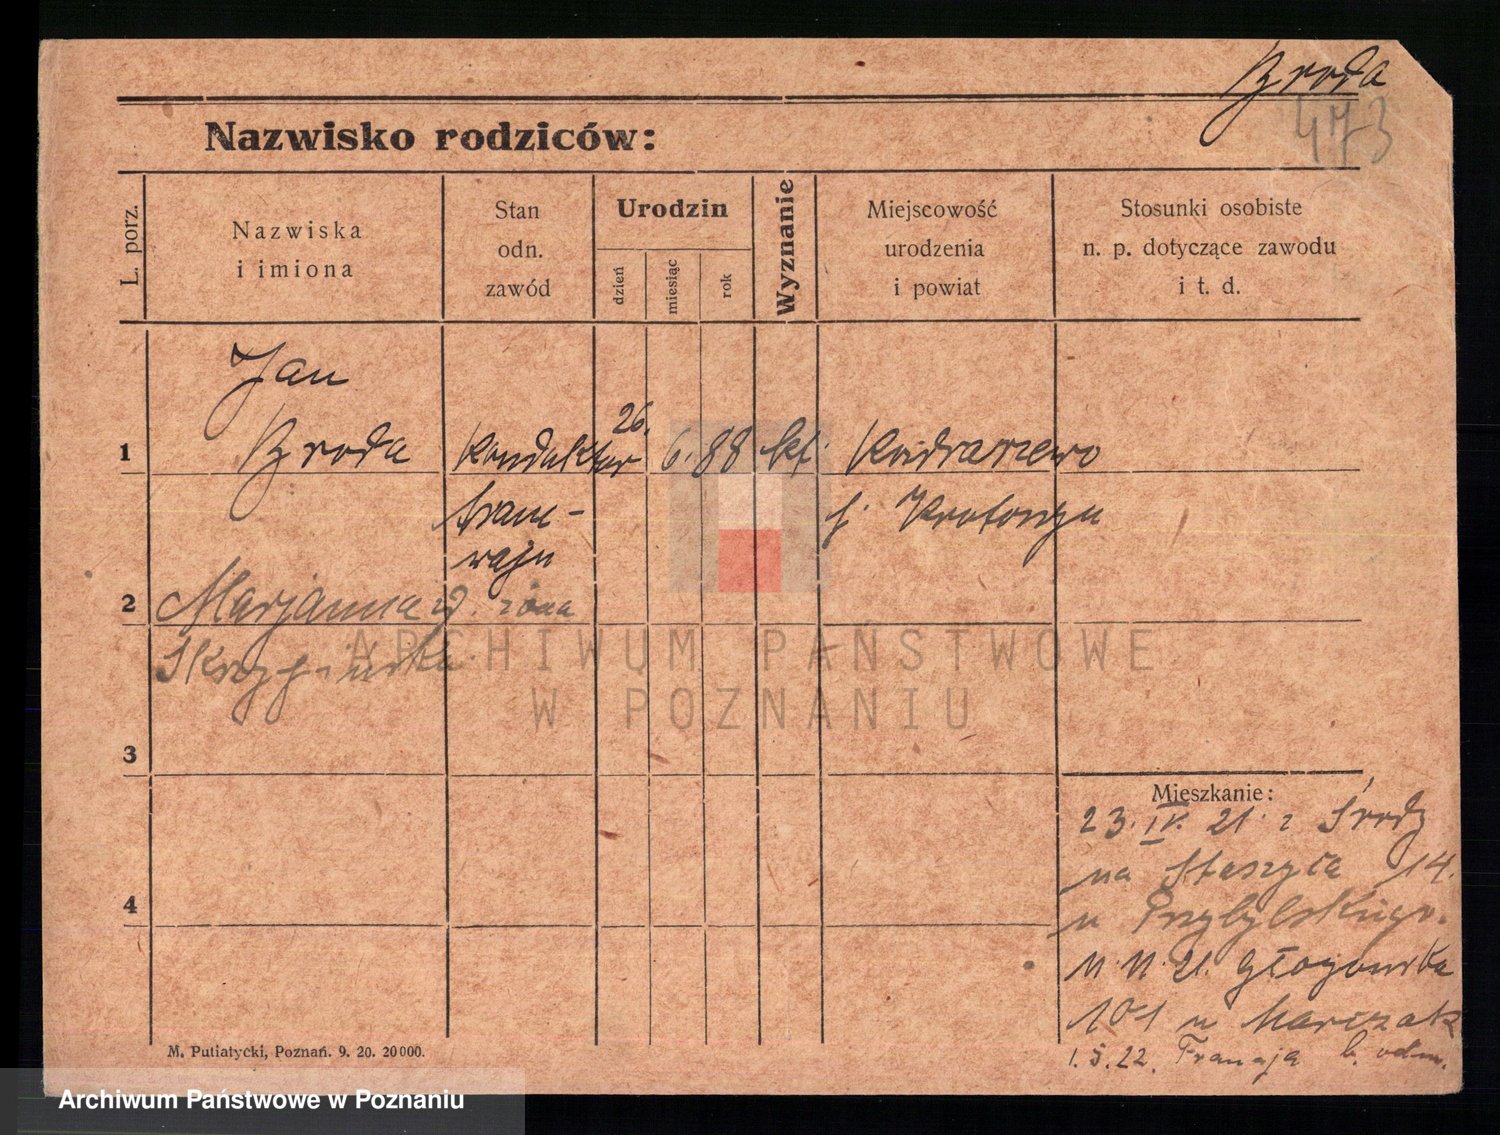 Broda
473
Nazwisko rodziców:
L. porz.
Nazwiska
i imiona
Stan
odn.
zawód
Urodzin
dzień
miesiąc
rok
Wyznanie
Miejscowość
urodzenia
i powiat
Stosunki osobiste
n. p. dotyczące zawodu
i t. d.
Jan
1 Broda Konduktor 26. 6. 88 kt.
tram-
waju
2 Marjanna żona
3
Mieszkanie:
23. IV. 21. z Środy
na Staszyca 14.
u Przybylskiego.
4
11. 11. 21. Głogowska
101 u Marczak
1. 5. 22. Francja
M. Putiatycki, Poznań. 9. 20. 20000.
ARCHIWUM PAŃSTWOWE
W POZNANIU
Archiwum Państwowe w Poznaniu